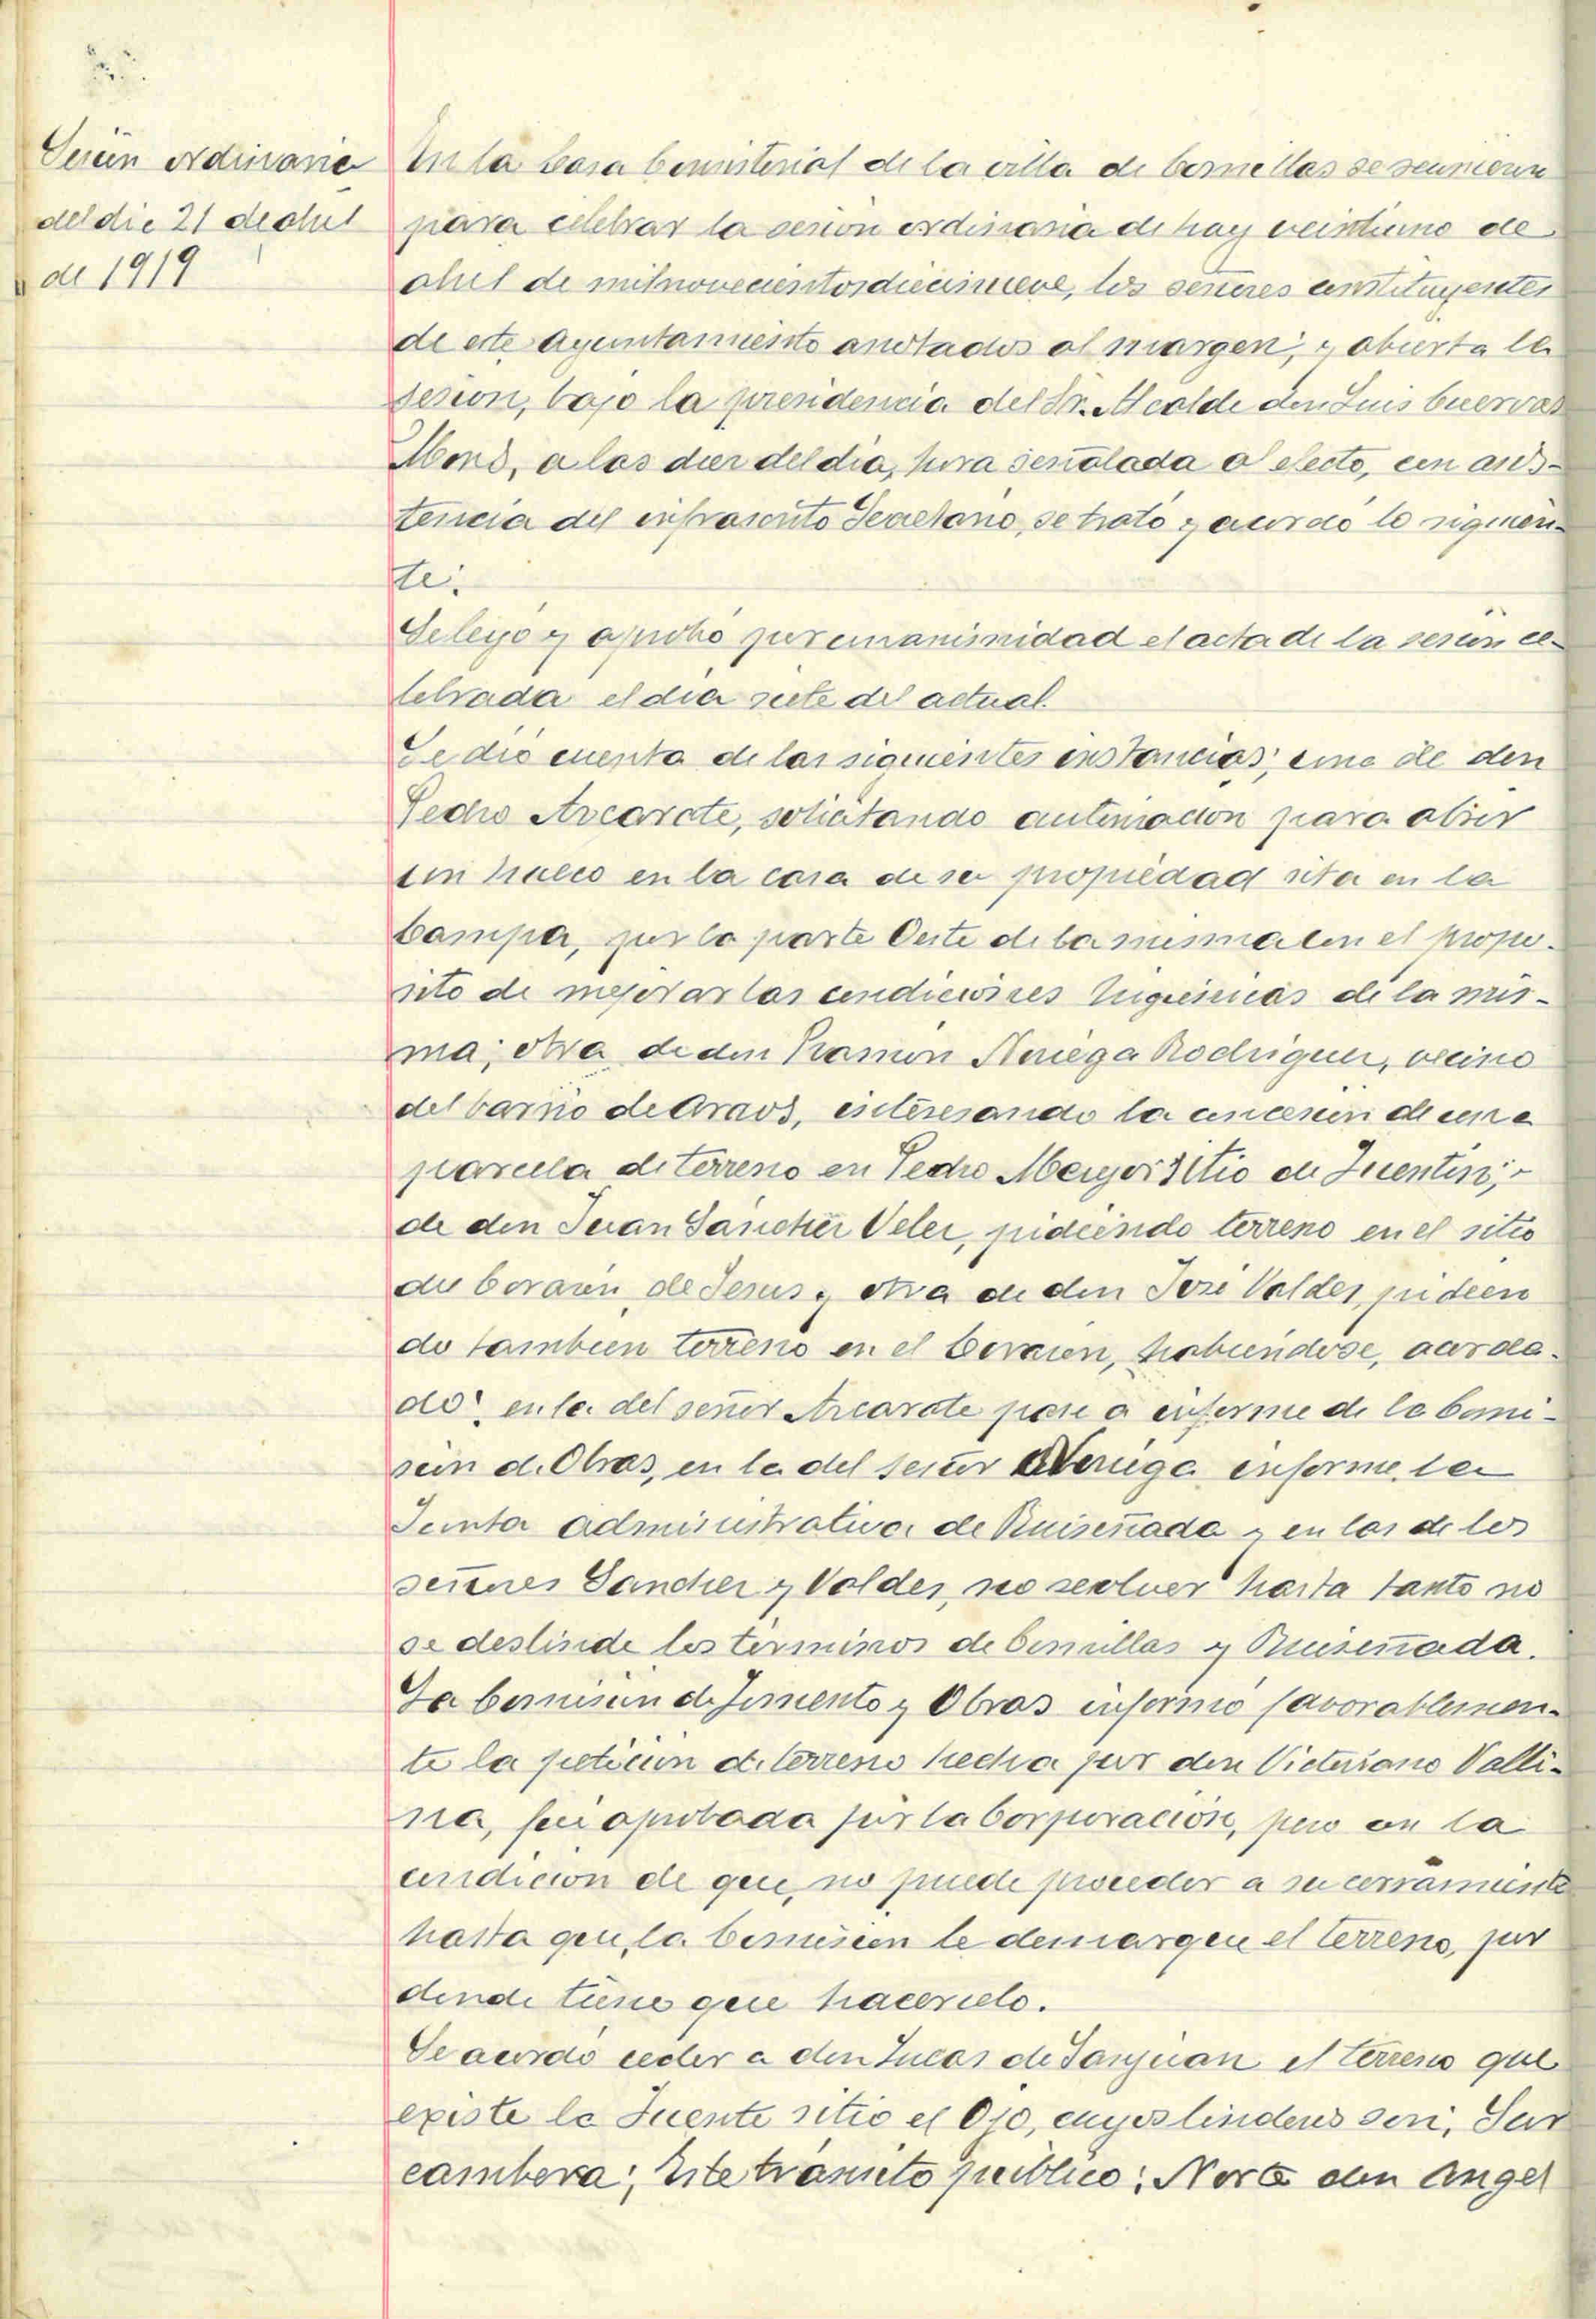 Sesión ordinaria
del dia 21 de abril
de 1919
En la Casa Consistorial de la villa de Comillas se reunieron
para celebrar la sesion ordinaria de hoy veintiuno de
abril de mil novecientos diecinueve, los señores constituyentes
de este Ayuntamiento anotados al margen, y abierta la
sesion, bajo la presidencia del Sr. Alcalde don Luis Cuervas
Mons, a las diez del dia, hora señalada al efecto, con asis-
tencia del infrascrito Secretario, se trató y acordó lo siguien-
te:
Se leyó y aprobó por unanimidad el acta de la sesión ce-
lebrada el dia siete del actual.
Se dió cuenta de las siguientes instancias; una de don
Pedro Azcarate, solicitando autorizacion para abrir
un hueco en la casa de su propiedad sita en la
Campa, por la parte Oeste de la misma con el propo-
sito de mejorar las condiciones higiénicas de la mis-
ma; otra de don Ramón Noriega Rodriguez, vecino
del barrio de Araos, interesando la concesion de una
parcela de terreno en Pedro Mayor sitio de
de don Juan Sanchez Velez, pidiendo terreno en el sitio
du Corazón de Jesus y otra de don José Valdes, pidien
do tambien terreno en el Corazon, habiendose, acorda-
do: en la del señor Azcarate pase a informe de la Comi-
sión de Obras, en la del señor Noriega informe la
Junta administrativa de Ruiseñada y en las de los
señores Sanchez y Valdes, no resolver hasta tanto no
se deslinde los términos de Comillas y Ruiseñada.
La Comisión de Fomento y Obras informó favorablemen-
te la petición de terreno hecha por don Victoriano Valli-
na, fué aprobada por la Corporación, pero con la
condicion de que, no puede proceder a su cerramiento
hasta que, la Comision le demarque el terreno, por
donde tiene que hacerselo.
Se acordó ceder a don Lucas de Sanjuan el terreno que
existe la Fuente sitio el Ojo, cuyos linderos son, Sur
cambera; Este tránsito público; Norte don Angel